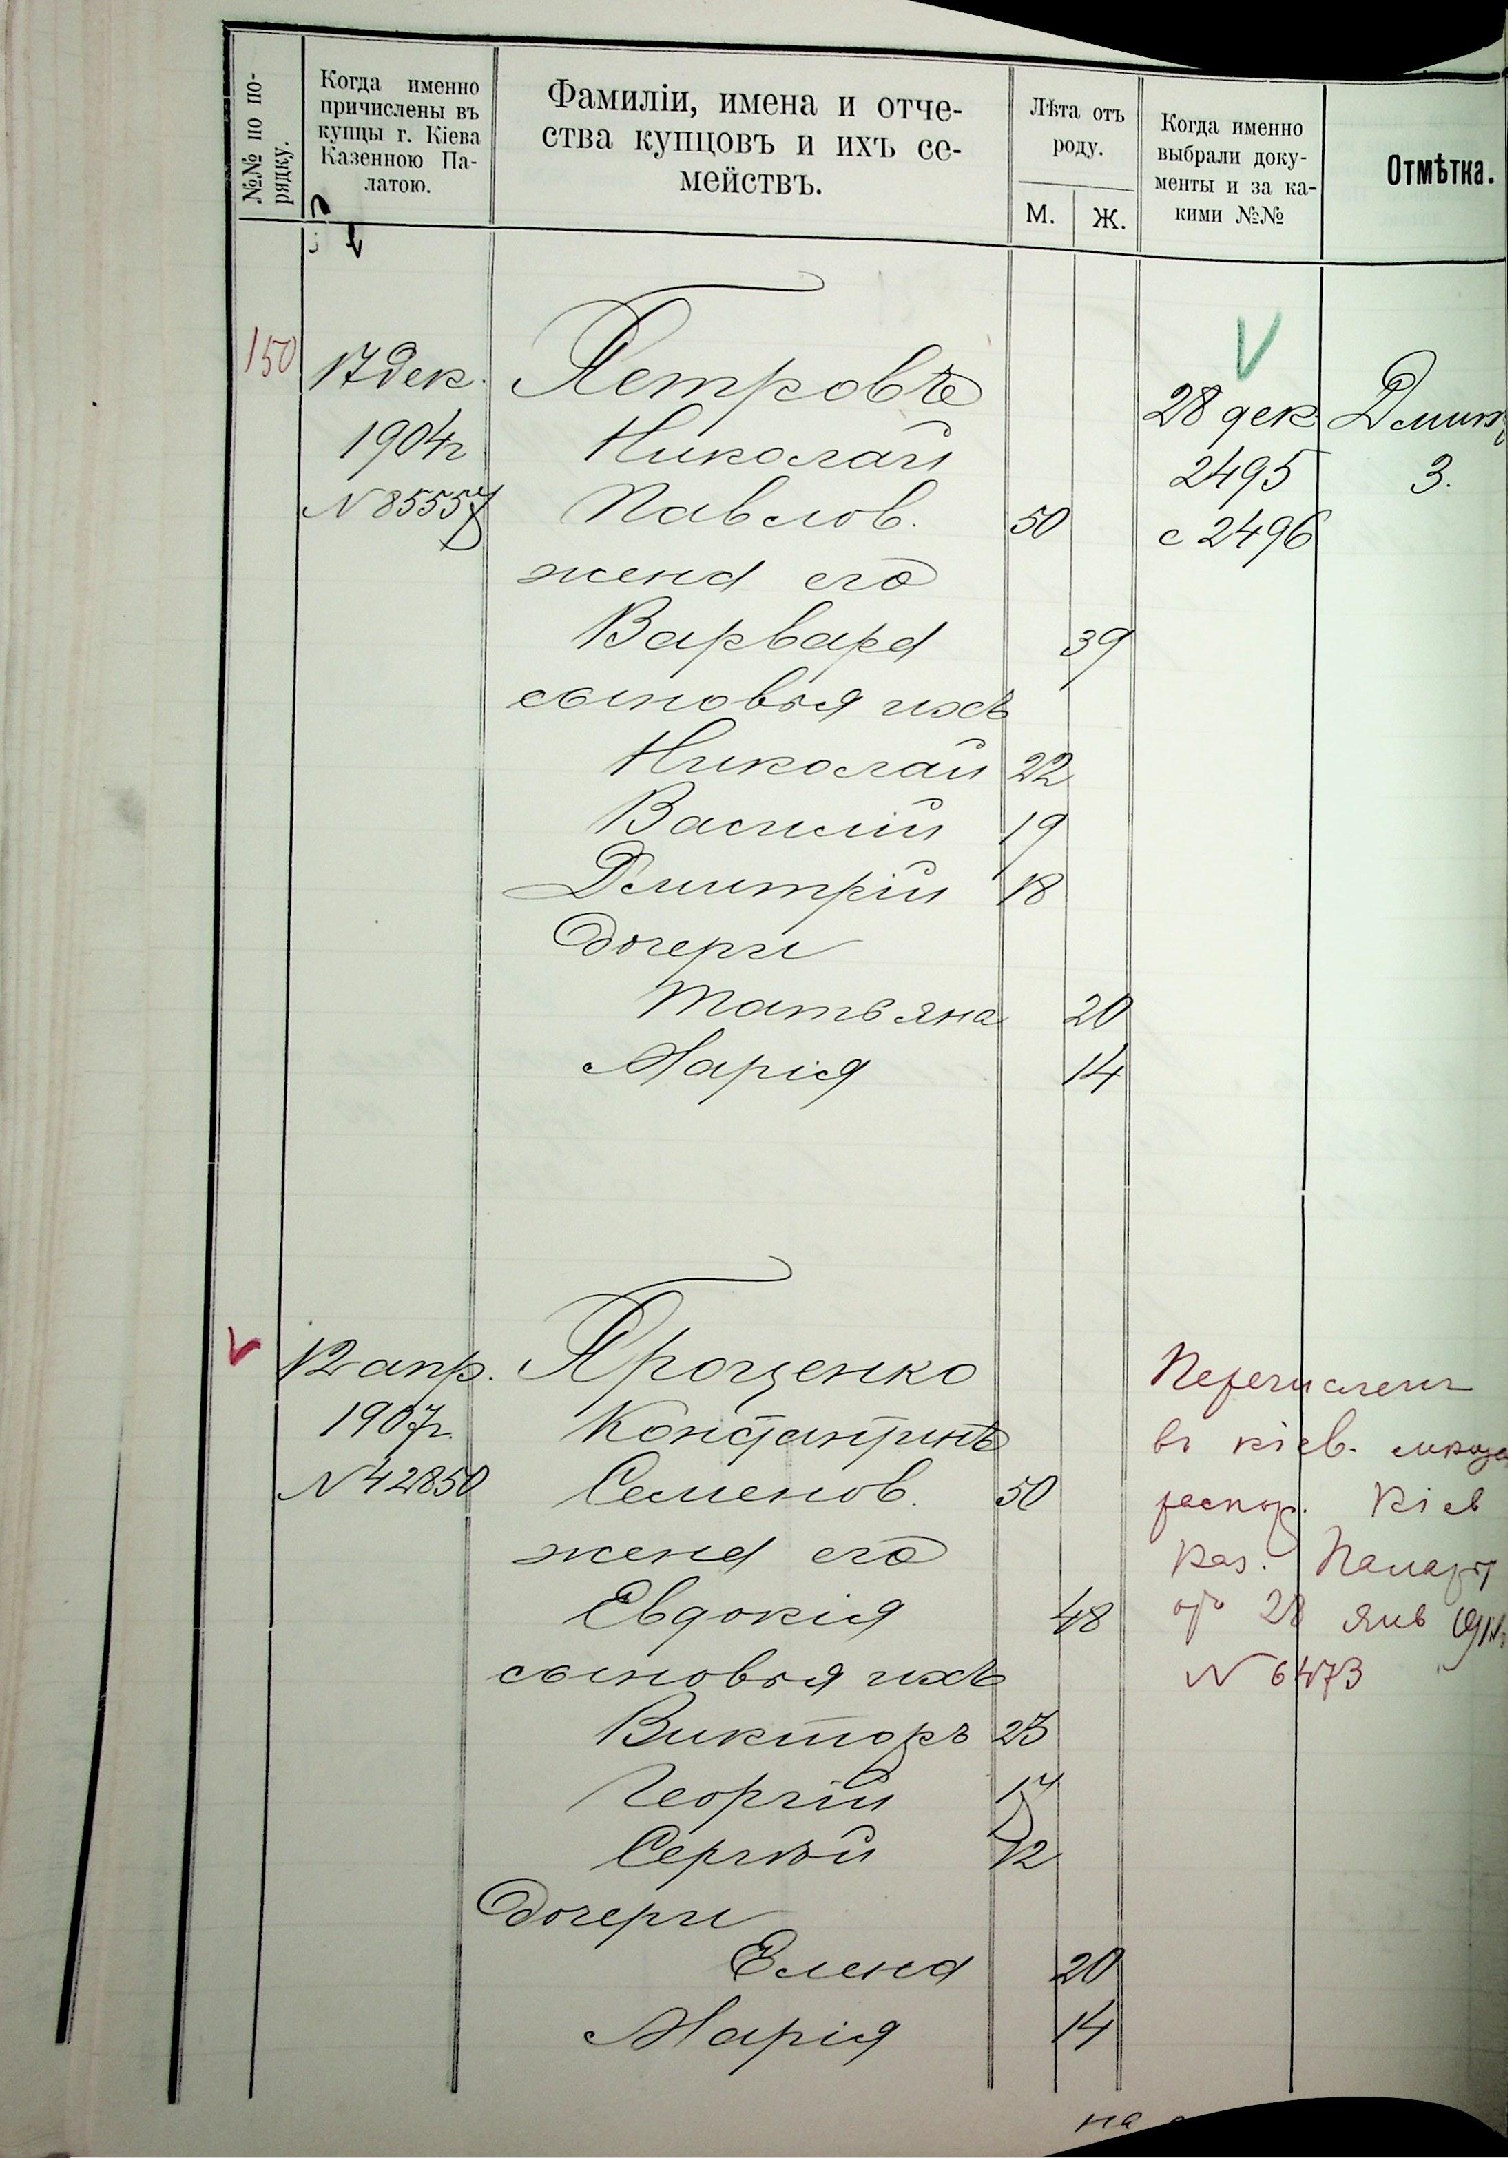 №№ по по-
рядку.
Когда именно
причислены въ
купцы г. Кіева
Казенною Па-
латою.
Фамиліи, имена и отче-
ства купцовъ и ихъ се-
мействъ.
Лѣта отъ
роду.
М. Ж.
Когда именно
выбрали доку-
менты и за ка-
кими №№
Отмѣтка.
150 17 дек. Петровъ 28 дек
1904 г Николай 2495 3.
N 85557 Павлов. 50 с 2496
жена его
Варвара 39
сыновья ихъ
Николай 22
Василій 19
Дмитрій 18
дочери
Татьяна 20
Марія 14
12 апр. Проценко Перечислен
1907 г. Константинъ въ кіев.
N 42850 Семенов. 50 распор. Кіев
жена его Каз. Палаты
Евдокія 48 отъ 28 янв
сыновья ихъ N 6473
Викторъ 23
Георгій 17
Сергѣй 12
дочери
Елена 20
Марія 14
на